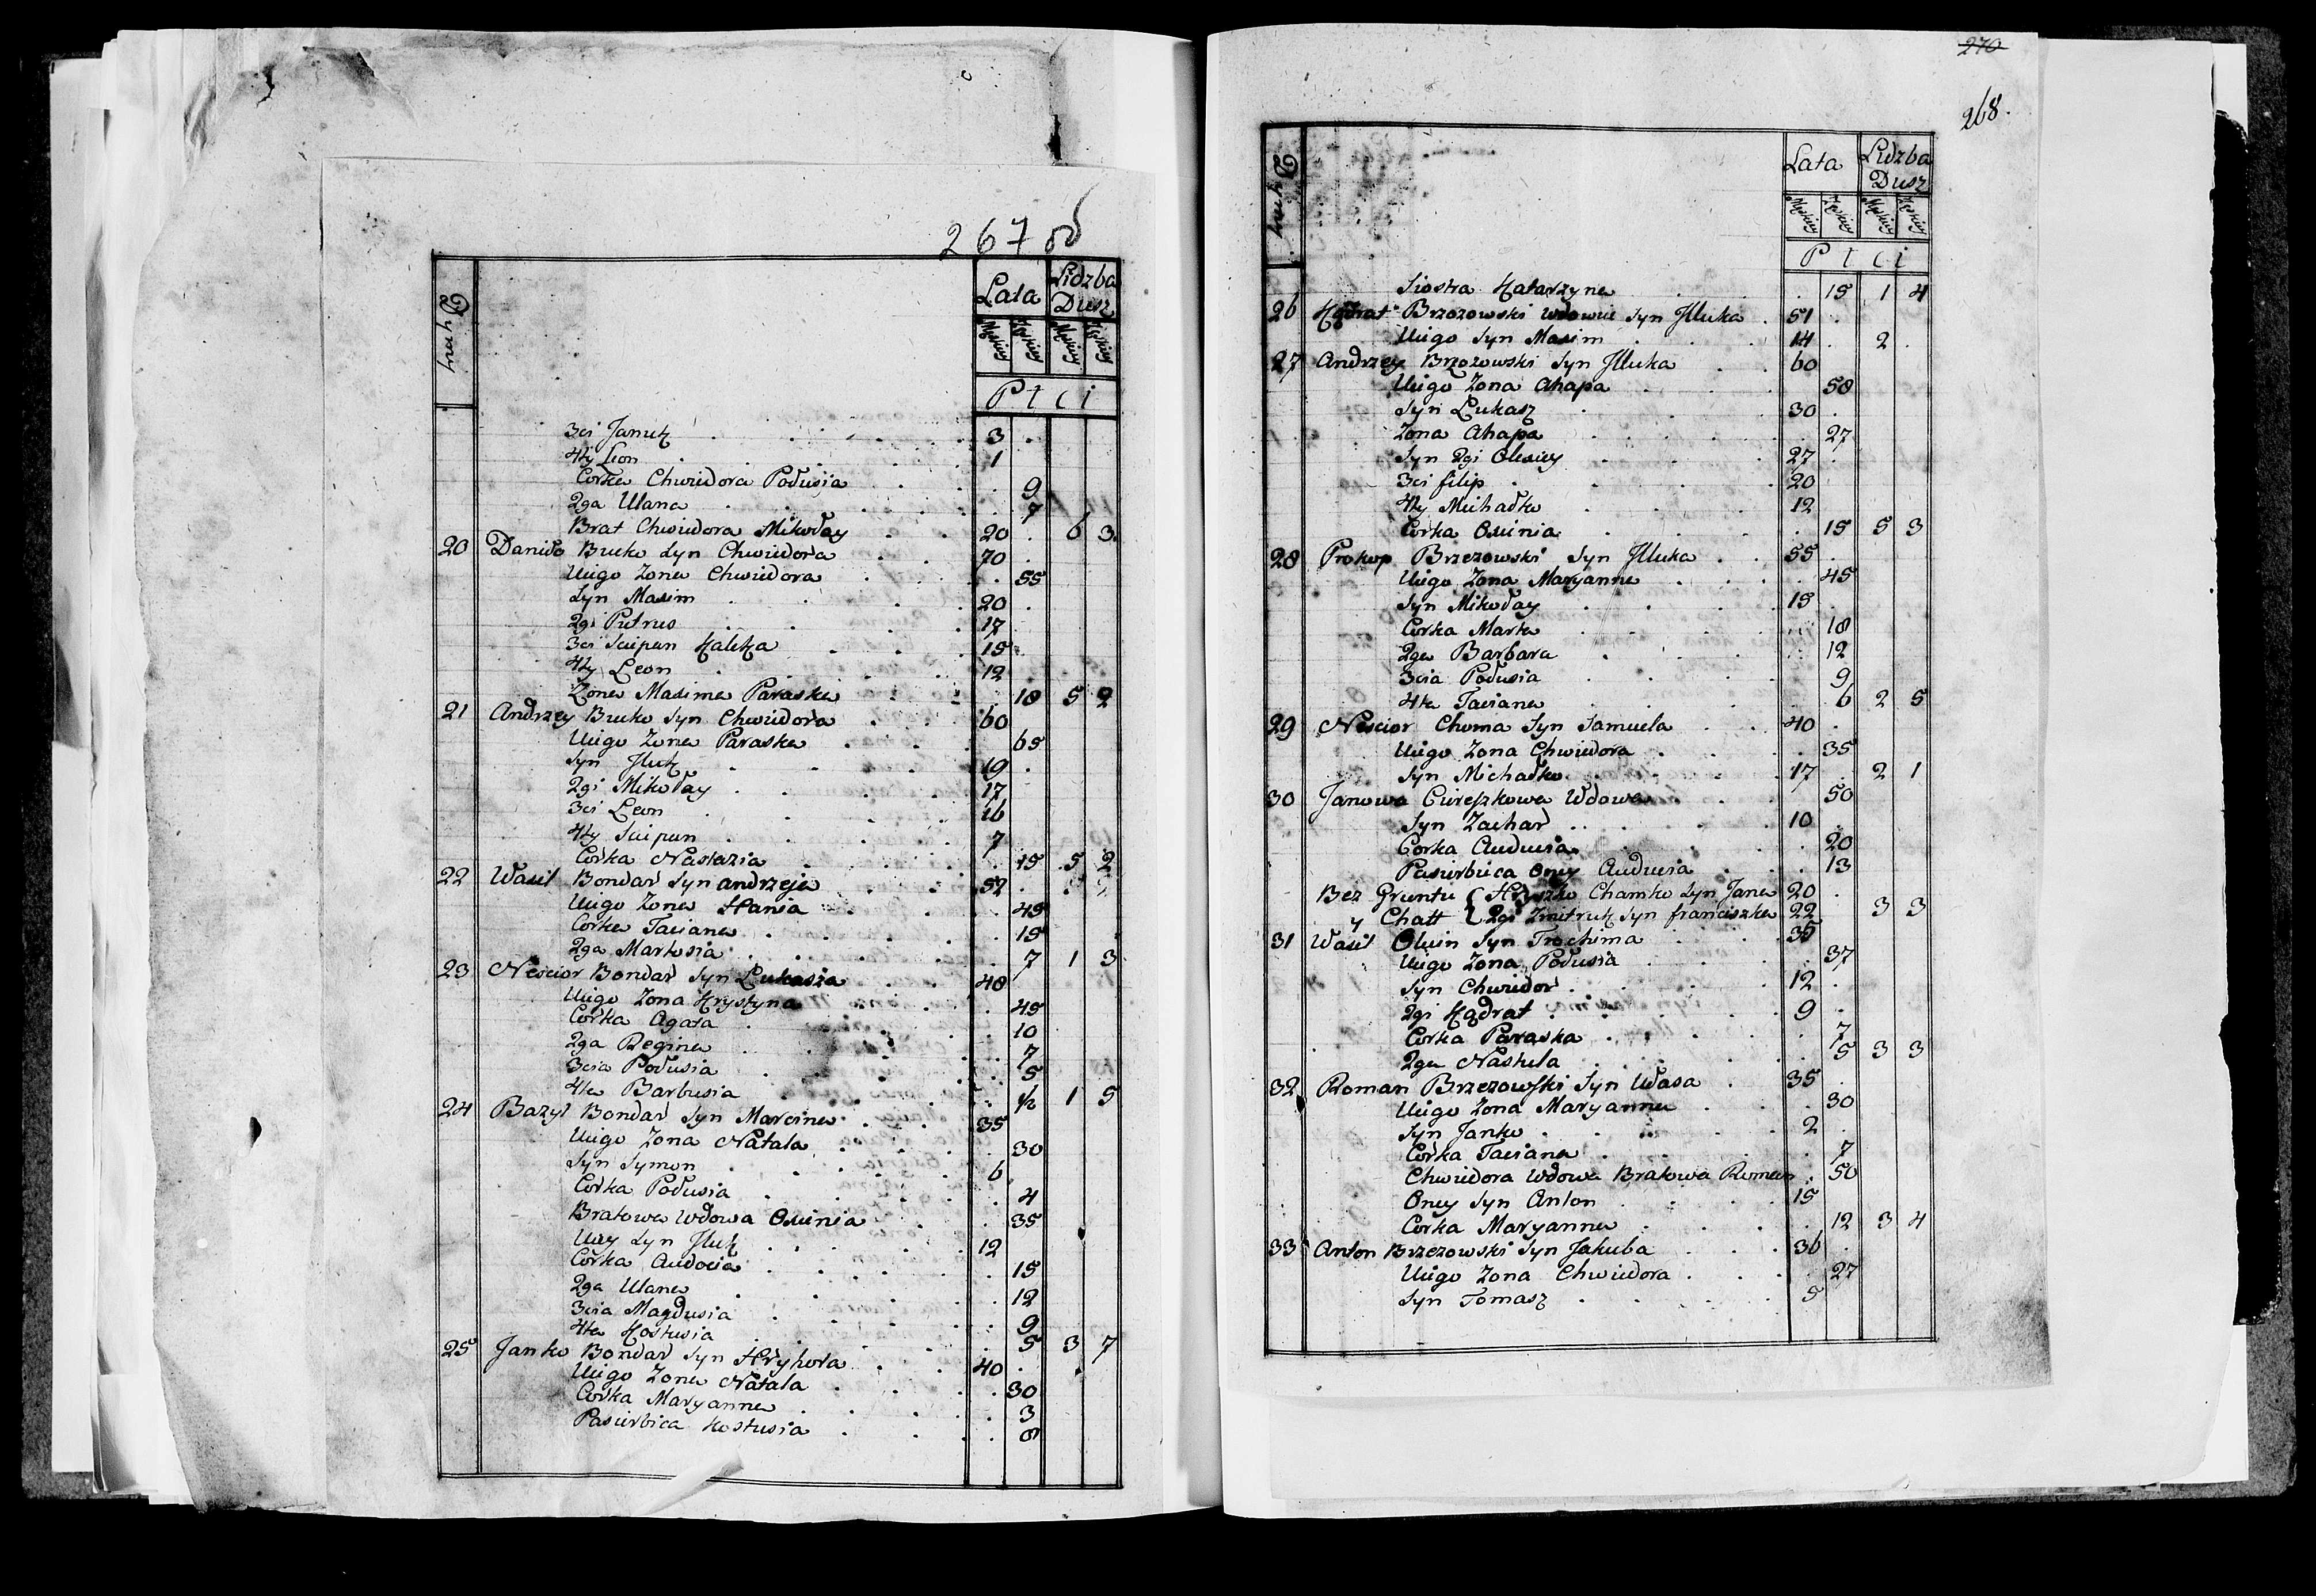 267 od
Dymy
Lata
Lidzba Dusz
Męskiey Żeńskiey Męskiey Żeńskiey
Płci
3ci Januk 3
4ty Leon 1
Corka Chwiedora Podusia 9
2ga Ulana 7
Brat Chwiedora Mikołay 20 6 3
20 Daniło Bucko Syn Chwiedora 70
Uiigo Zona Chwiedora 55
Syn Maxim 20
2gi Pietrus 17
3ci Sciepan Kaleka 15
4ty Leon 12
Zona Maxima Paraska 18 5 2
21 Andrzey Bucko Syn Chwiedora 60
Uiigo Zona Paraska 65
Syn Iluk 19
2gi Mikołay 17
3ci Leon 16
4ty Sciepan 7
Corka Nastazia 15 5 2
22 Wasil Bondar Syn andrzeja 52
Uiigo Zona Hania 45
Corka Taciana 15
2ga Martosia 7 1 3
23 Nescior Bondar Syn Łukasza 48
Uiigo Zona Krystyna 45
Corka Agata 10
2ga Regina 7
3cia Podusia 5
4ta Barbusia 1/2 1 5
24 Bazyl Bondar Syn Marcina 35
Uiigo Zona Natala 30
Syn Symon 6
Corka Podusia 4
Bratowa Wdowa Oxinia 35
Uiey Syn Iluk 12
Corka Audocia 15
2ga Ulana 12
3cia Magdusia 9
4ta Kostusia 5 3 7
25 Janko Bondar Syn Hryhora 40
Uiigo Zona Natala 30
Corka Maryanna 3
Pasierbica Kostusia 8
270
268.
Dymy
Lata
Lidzba Dusz
Męskiey Żeńskiey Męskiey Żeńskiey
Płci
Siostra Katarzyna 15 1 4
26 Kądrat Brzozowski wdowiec Syn Iluka 51
Uiigo Syn Maxim 14 2
27 Andrzey Brzozowski Syn Iluka 60
Uiigo Zona Ahapa 58
Syn Łukasz 30
Zona Ahapa 27
Syn 2gi Olexiey 27
3ci filip 20
4ty Michałko 12
Corka Oxinia 15 5 3
28 Prokop Brzezowski Syn Iluka 55
Uiigo Zona Maryanna 45
Syn Mikołay 15
Corka Marta 18
2ga Barbara 12
3cia Podusia 9
4ta Taciana 6 2 5
29 Nescior Choma Syn Samuela 40
Uiigo Zona Chwiedora 35
Syn Michałko 17 2 1
30 Janowa Cierepkowa Wdowa 50
Syn Zachar 10
Corka Auducia 20
Pasierbica Oney Auducia 13
Bez Gruntu { Hryszko Chamko Syn Jana 20
y Chatt { 2gi Zmitruk Syn franciszka 22 3 3
31 Wasil Olwin Syn Trochima 35
Uiigo Zona Podusia 37
Syn Chwiedor 12
2gi Kądrat 9
Corka Paraska 7
2ga Nastula 5 3 3
32 Roman Brzezowski Syn Własa 35
Uiigo Zona Maryanna 30
Syn Janko 2
Corka Taciana 7
Chwiedora Wdowa Bratowa Roman 50
Oney Syn Anton 15
Corka Maryanna 12 3 4
33 Anton Brzezowski Syn Jakuba 36
Uiigo Zona Chwiedora 27
Syn Tomasz 5